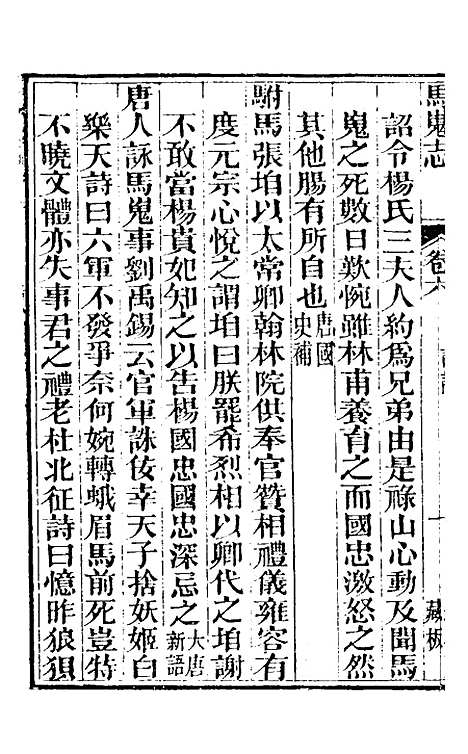 馬嵬志
卷六
藏板
詔令楊氏三夫人約爲兄弟由是祿山心動及聞馬
嵬之死數日歎惋雖林甫養育之而國忠激怒之然
其他腸有所自也唐國史補
駙馬張垍以太常卿翰林院供奉官贊相禮儀雍容有
度元宗心悅之謂垍曰朕罷希烈相以卿代之垍謝
不敢當楊貴妃知之以告楊國忠國忠深忌之大唐新語
唐人詠馬嵬事劉禹錫云官軍誅佞幸天子捨妖姬白
樂天詩曰六軍不發爭奈何婉轉蛾眉馬前死豈特
不曉文體亦失事君之禮老杜北征詩曰憶昨狼狽